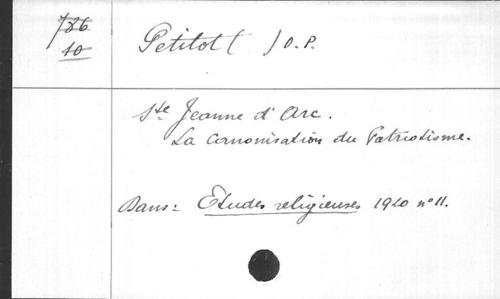 786
10
Petitot ( ) O.P.
Ste Jeanne d'Arc.
La Canonisation du Patriotisme.
Dans: Etudes religieuses 1920 n° 11.